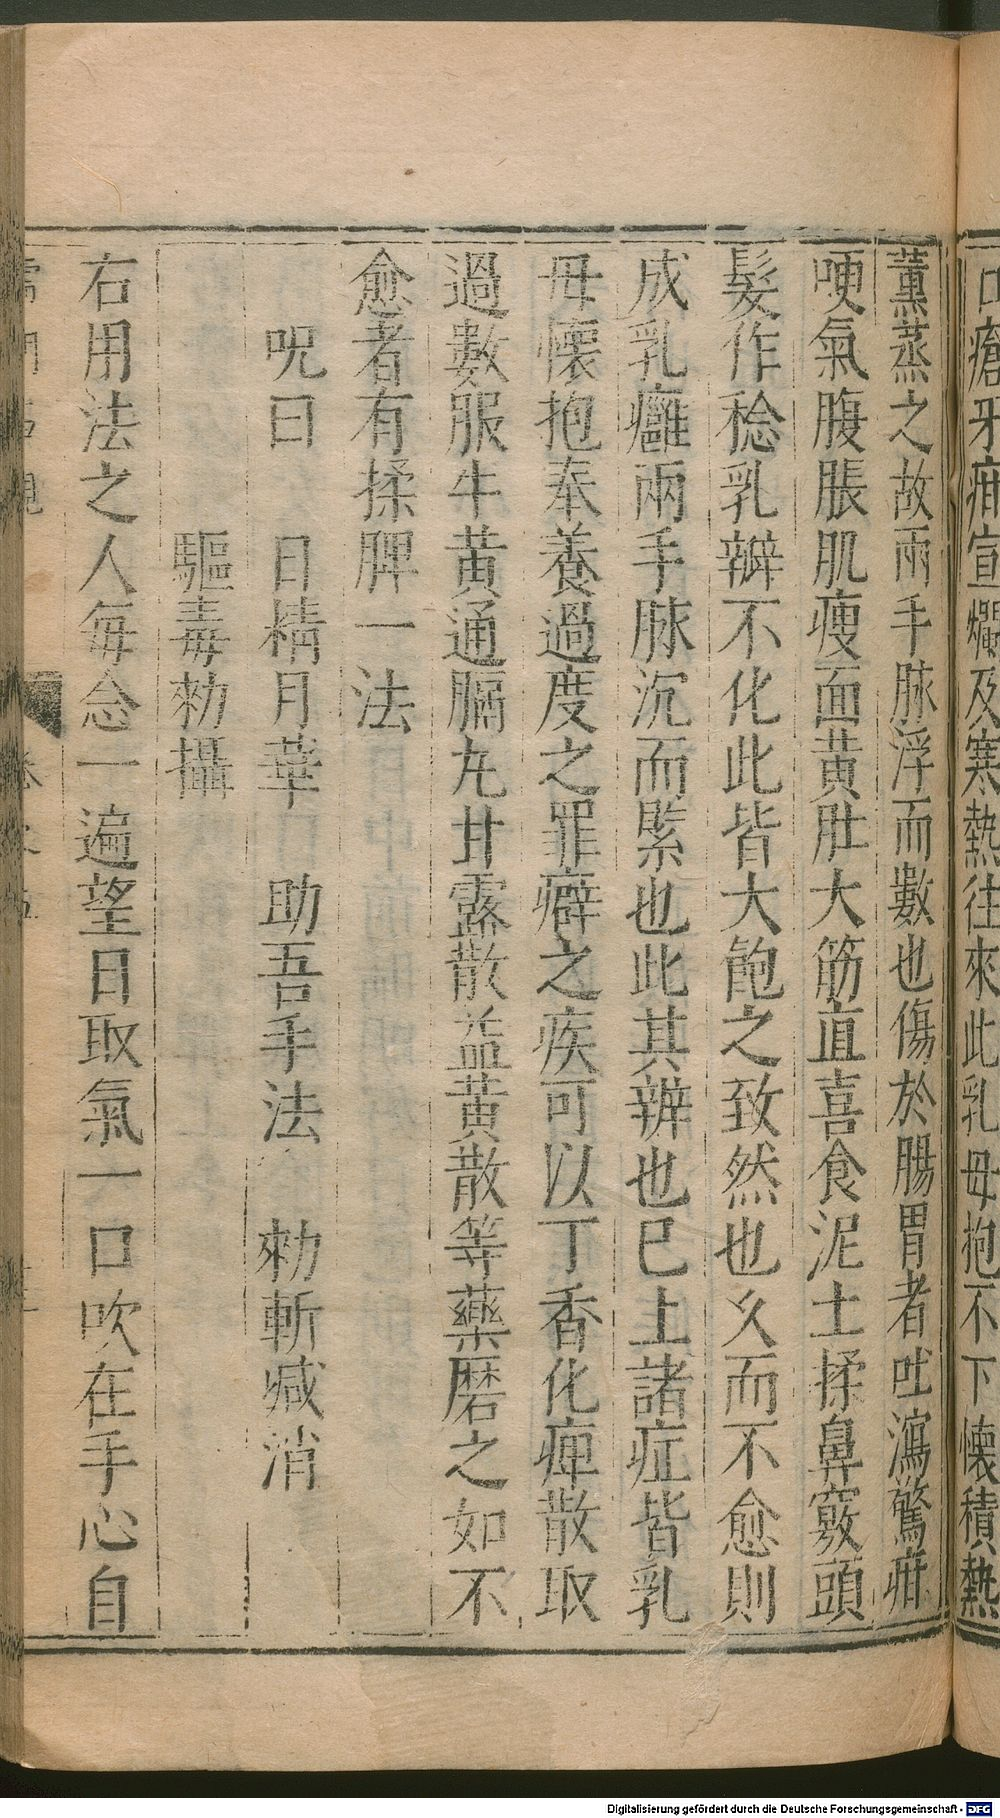 口瘡牙疳宣爛及寒熱往來此乳母抱不下懷積熱
薰蒸之故兩手脉浮而數也傷於腸胃者吐瀉驚疳
哽氣腹脹肌瘦面黃肚大筋直喜食泥土揉鼻竅頭
髮作稔乳辧不化此皆大飽之致然也乆而不愈則
成乳癰兩手脉沉而緊也此其辨也巳上諸症皆乳
母懷抱奉養過度之罪癖之疾可以丁香化痺散取
過數服牛黃通膈丸甘露散益黃散等藥磨之如不
愈者有揉脾一法
呪曰 日精月華 助吾手法 勑斬喊消
驅毒勑攝
右用法之人每念一遍望日取氣一口吹在手心自
Digitalisierung gefördert durch die Deutsche Forschungsgemeinschaft - DFG